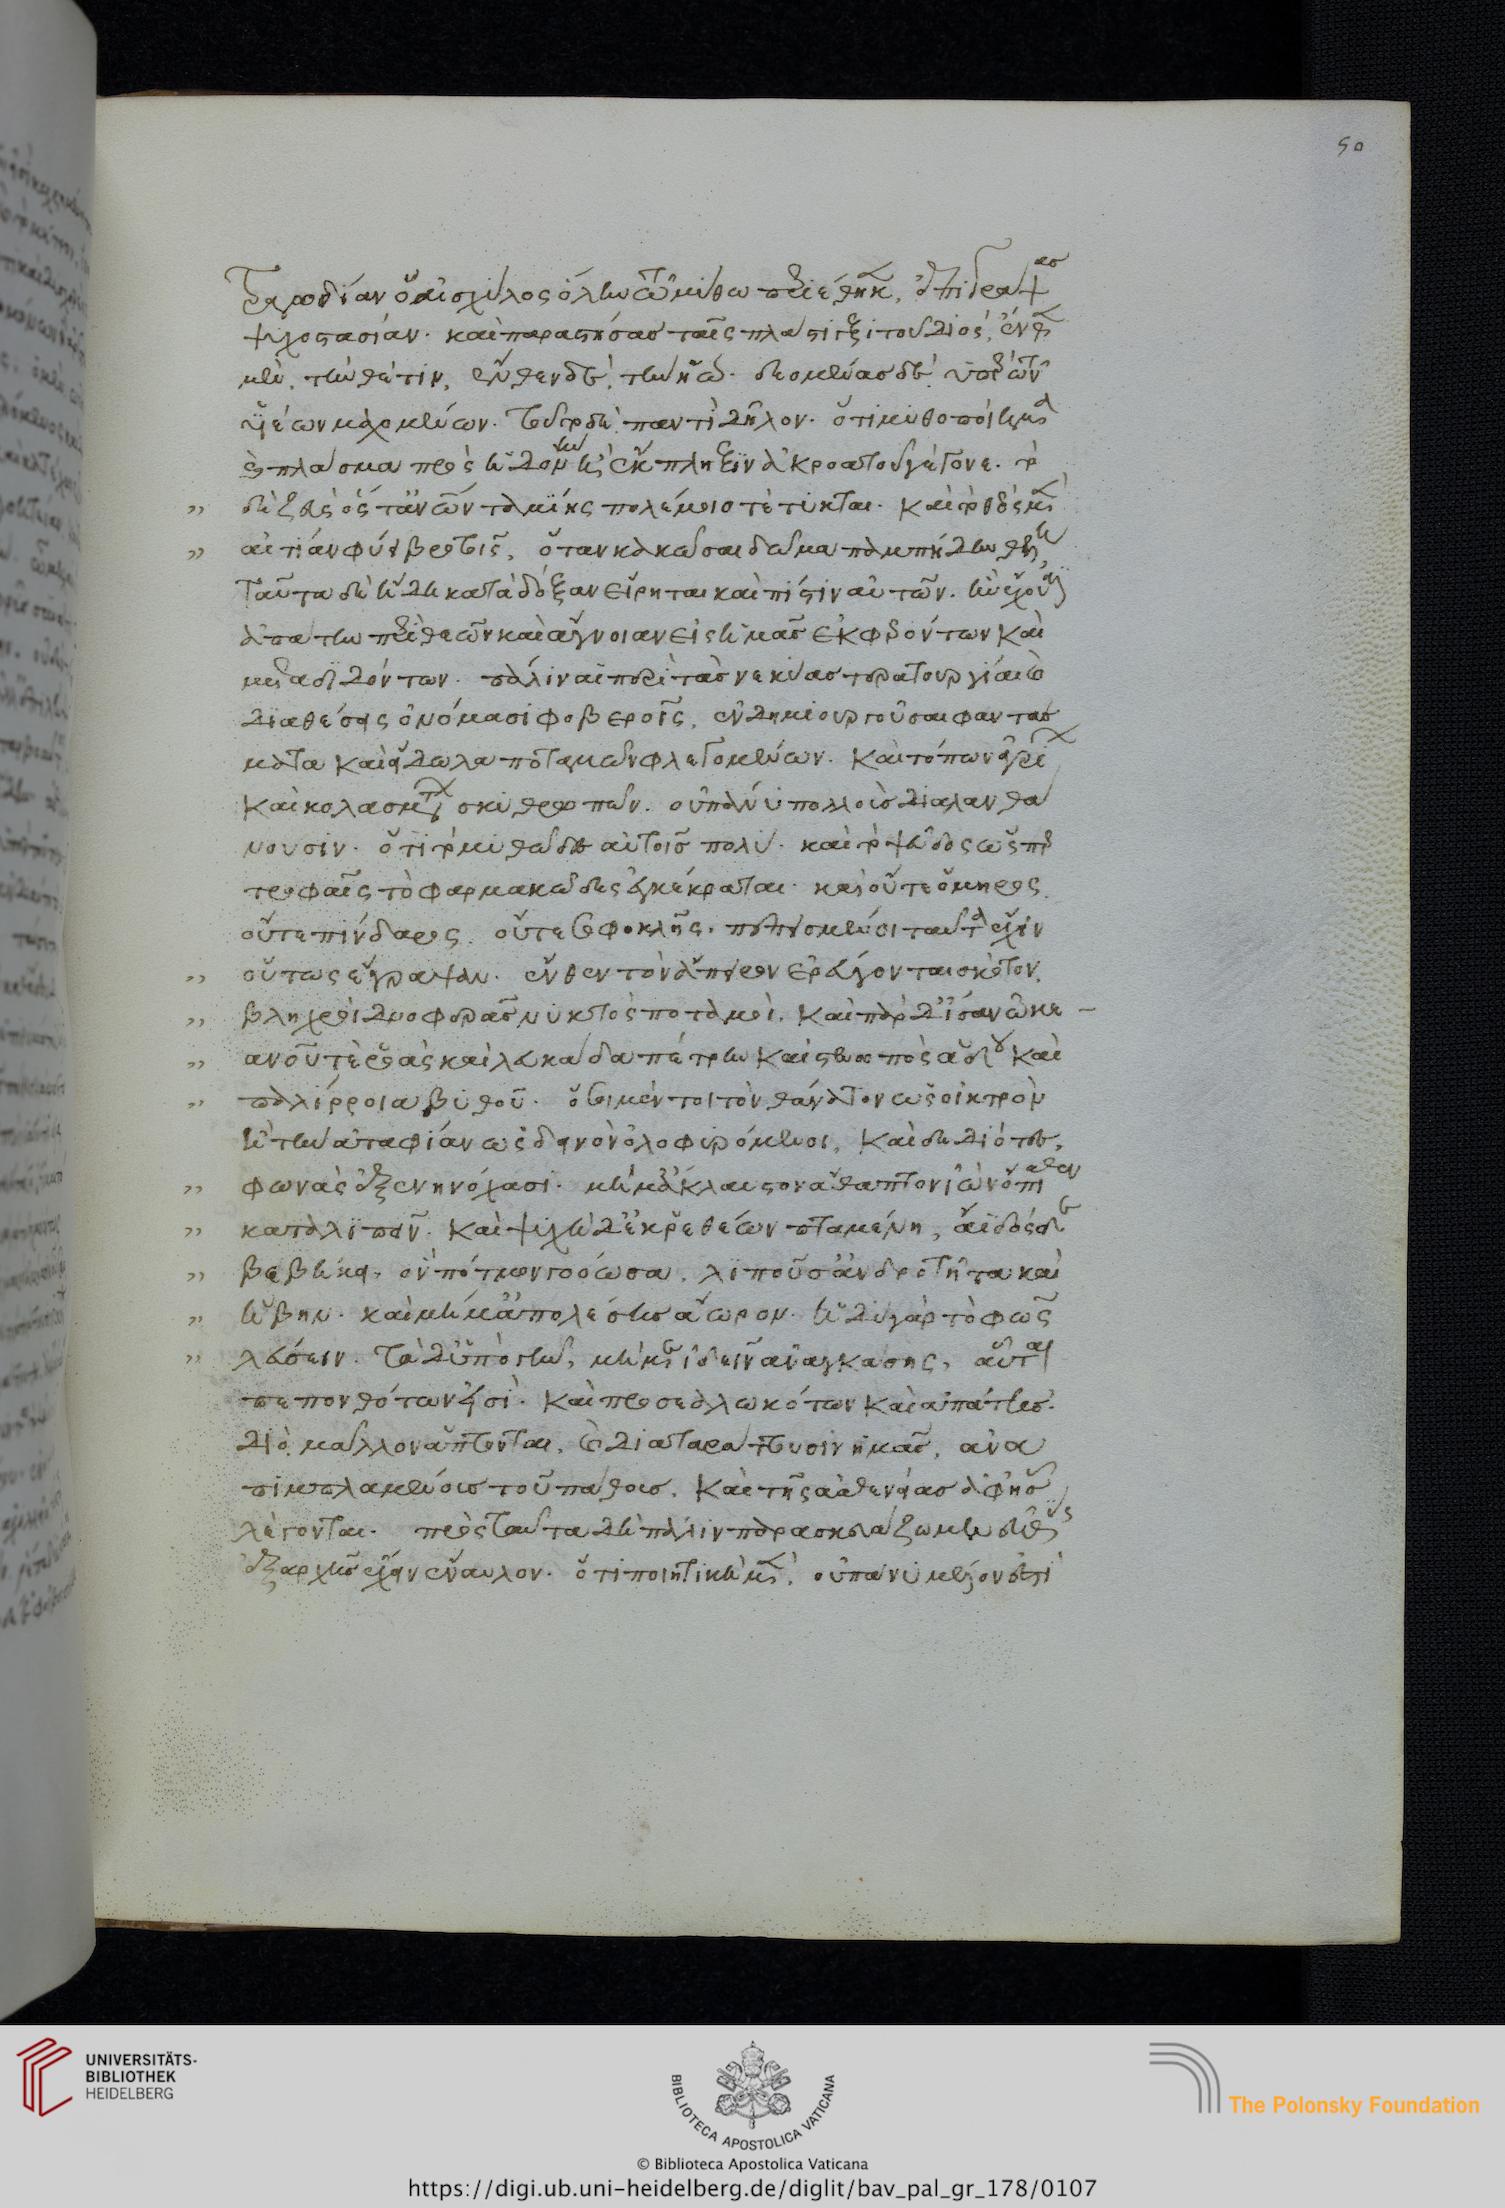 50
τραγῳδίαν ὁ αἰσχύλος ὅλην τῶ μύθω περιέθηκεν, ἐπιγράψας
ψυχοστασίαν· καὶ παραστήσας ταῖς πλάστιγξι τοῦ διὸς, ἔνθεν
μὲν, τὴν θέτιν, ἔνθεν δὲ, τὴν ἠῶ· δεομένας δὲ, ὑπὲρ τῶν
υἱέων μαχομένων. τοῦτο δὲ, παντὶ δῆλον. ὅτι μυθοποίημα
καὶ πλάσμα πρὸς ἡδονὴν ἢ ἔκπληξιν ἀκροατοῦ γέγονε. τὸ
„ δὲ ζεὺς ὅς τ' ἀνθρώπων ταμίης πολέμοιο τέτυκται. καὶ τὸ θεὸς μὲν
„ αἰτίαν φύει βροτοῖς, ὅταν κακῶσαι δῶμα παμπήδην θέλῃ,
ταῦτα δὲ ἤδη κατὰ δόξαν εἴρηται καὶ πίστιν αὐτῶν. ἣν ἔχουσιν
ἀπάτην περὶ θεῶν καὶ ἄγνοιαν εἰς ἡμᾶς ἐκφερόντων καὶ
μεταδιδόντων. πάλιν αἱ περὶ τὰς νεκυίας τερατουργίαι καὶ
διαθέσεις ὀνόμασι φοβεροῖς, ἐνδημιουργοῦσαι φαντάσ
ματα καὶ εἴδωλα ποταμῶν φλεγομένων. καὶ τόπων ἀγρίων
καὶ κολασμάτων σκυθρωπῶν. οὐ πάνυ πολλοὺς διαλανθά
νουσιν. ὅτι τὸ μυθῶδες αὐτοῖς πολὺ. καὶ τὸ ψεῦδος ὥσπερ
τροφαῖς τὸ φαρμακῶδες ἐγκέκραται. καὶ οὔτε ὅμηρος.
οὔτε πίνδαρος. οὔτε σοφοκλῆς. πεπεισμένοι ταῦτα ἔχειν
„ οὕτως ἔγραψαν. ἔνθεν τὸν ἄπειρον ἐρεύγονται σκότον.
„ βληχροὶ δνοφερᾶς νυκτὸς ποταμοί. καὶ πὰρ δ' ἴσαν ὠκε-
„ ανοῦ τε ῥοὰς καὶ λευκάδα πέτρην καὶ στενωπὸς ἅδου καὶ
„ παλίρροια βυθοῦ. ὅσοι μέντοι τὸν θάνατον ὡς οἰκτρὸν
ἢ τὴν ἀταφίαν ὡς δεινὸν ὀλοφυρόμενοι, καὶ δεδιότες,
„ φωνὰς ἐξενηνόχασι. μή μ' ἄκλαυστον ἄθαπτον ἰὼν ὄπιθεν
„ καταλείπειν. καὶ ψυχὴ δ' ἐκ ῥεθέων πταμένη, ἄϊδόσδε
„ βεβήκει. ὃν πότμον γοόωσα. λιποῦσ' ἀνδροτῆτα καὶ
„ ἥβην. καὶ μή μ' ἀπολέσης ἄωρον. ἡδὺ γὰρ τὸ φῶς
„ λεύσειν. τὰ δ' ὑπὸ γῆν, μή μ' ἰδεῖν ἀναγκάσης, αὗται
πεπονθότων εἰσὶ. καὶ προσεαλωκότων καὶ ἀπάτης.
διὸ, μᾶλλον ἅπτονται, καὶ διαταράττουσιν ἡμᾶς, ἀνα
πιμπλαμένους τοῦ πάθους. καὶ τῆς ἀσθενείας ἀφ' ἧς
λέγονται. πρὸς ταῦτα δὴ πάλιν παρασκευάζωμεν εὐθὺς
ἐξ ἀρχῆς ἔχειν ἔναυλον. ὅτι ποιητικῇ μὲν, οὐ πάνυ μέλον ἐστὶ
UNIVERSITÄTS-
BIBLIOTHEK
HEIDELBERG
BIBLIOTECA APOSTOLICA VATICANA
The Polonsky Foundation
© Biblioteca Apostolica Vaticana
https://digi.ub.uni-heidelberg.de/diglit/bav_pal_gr_178/0107